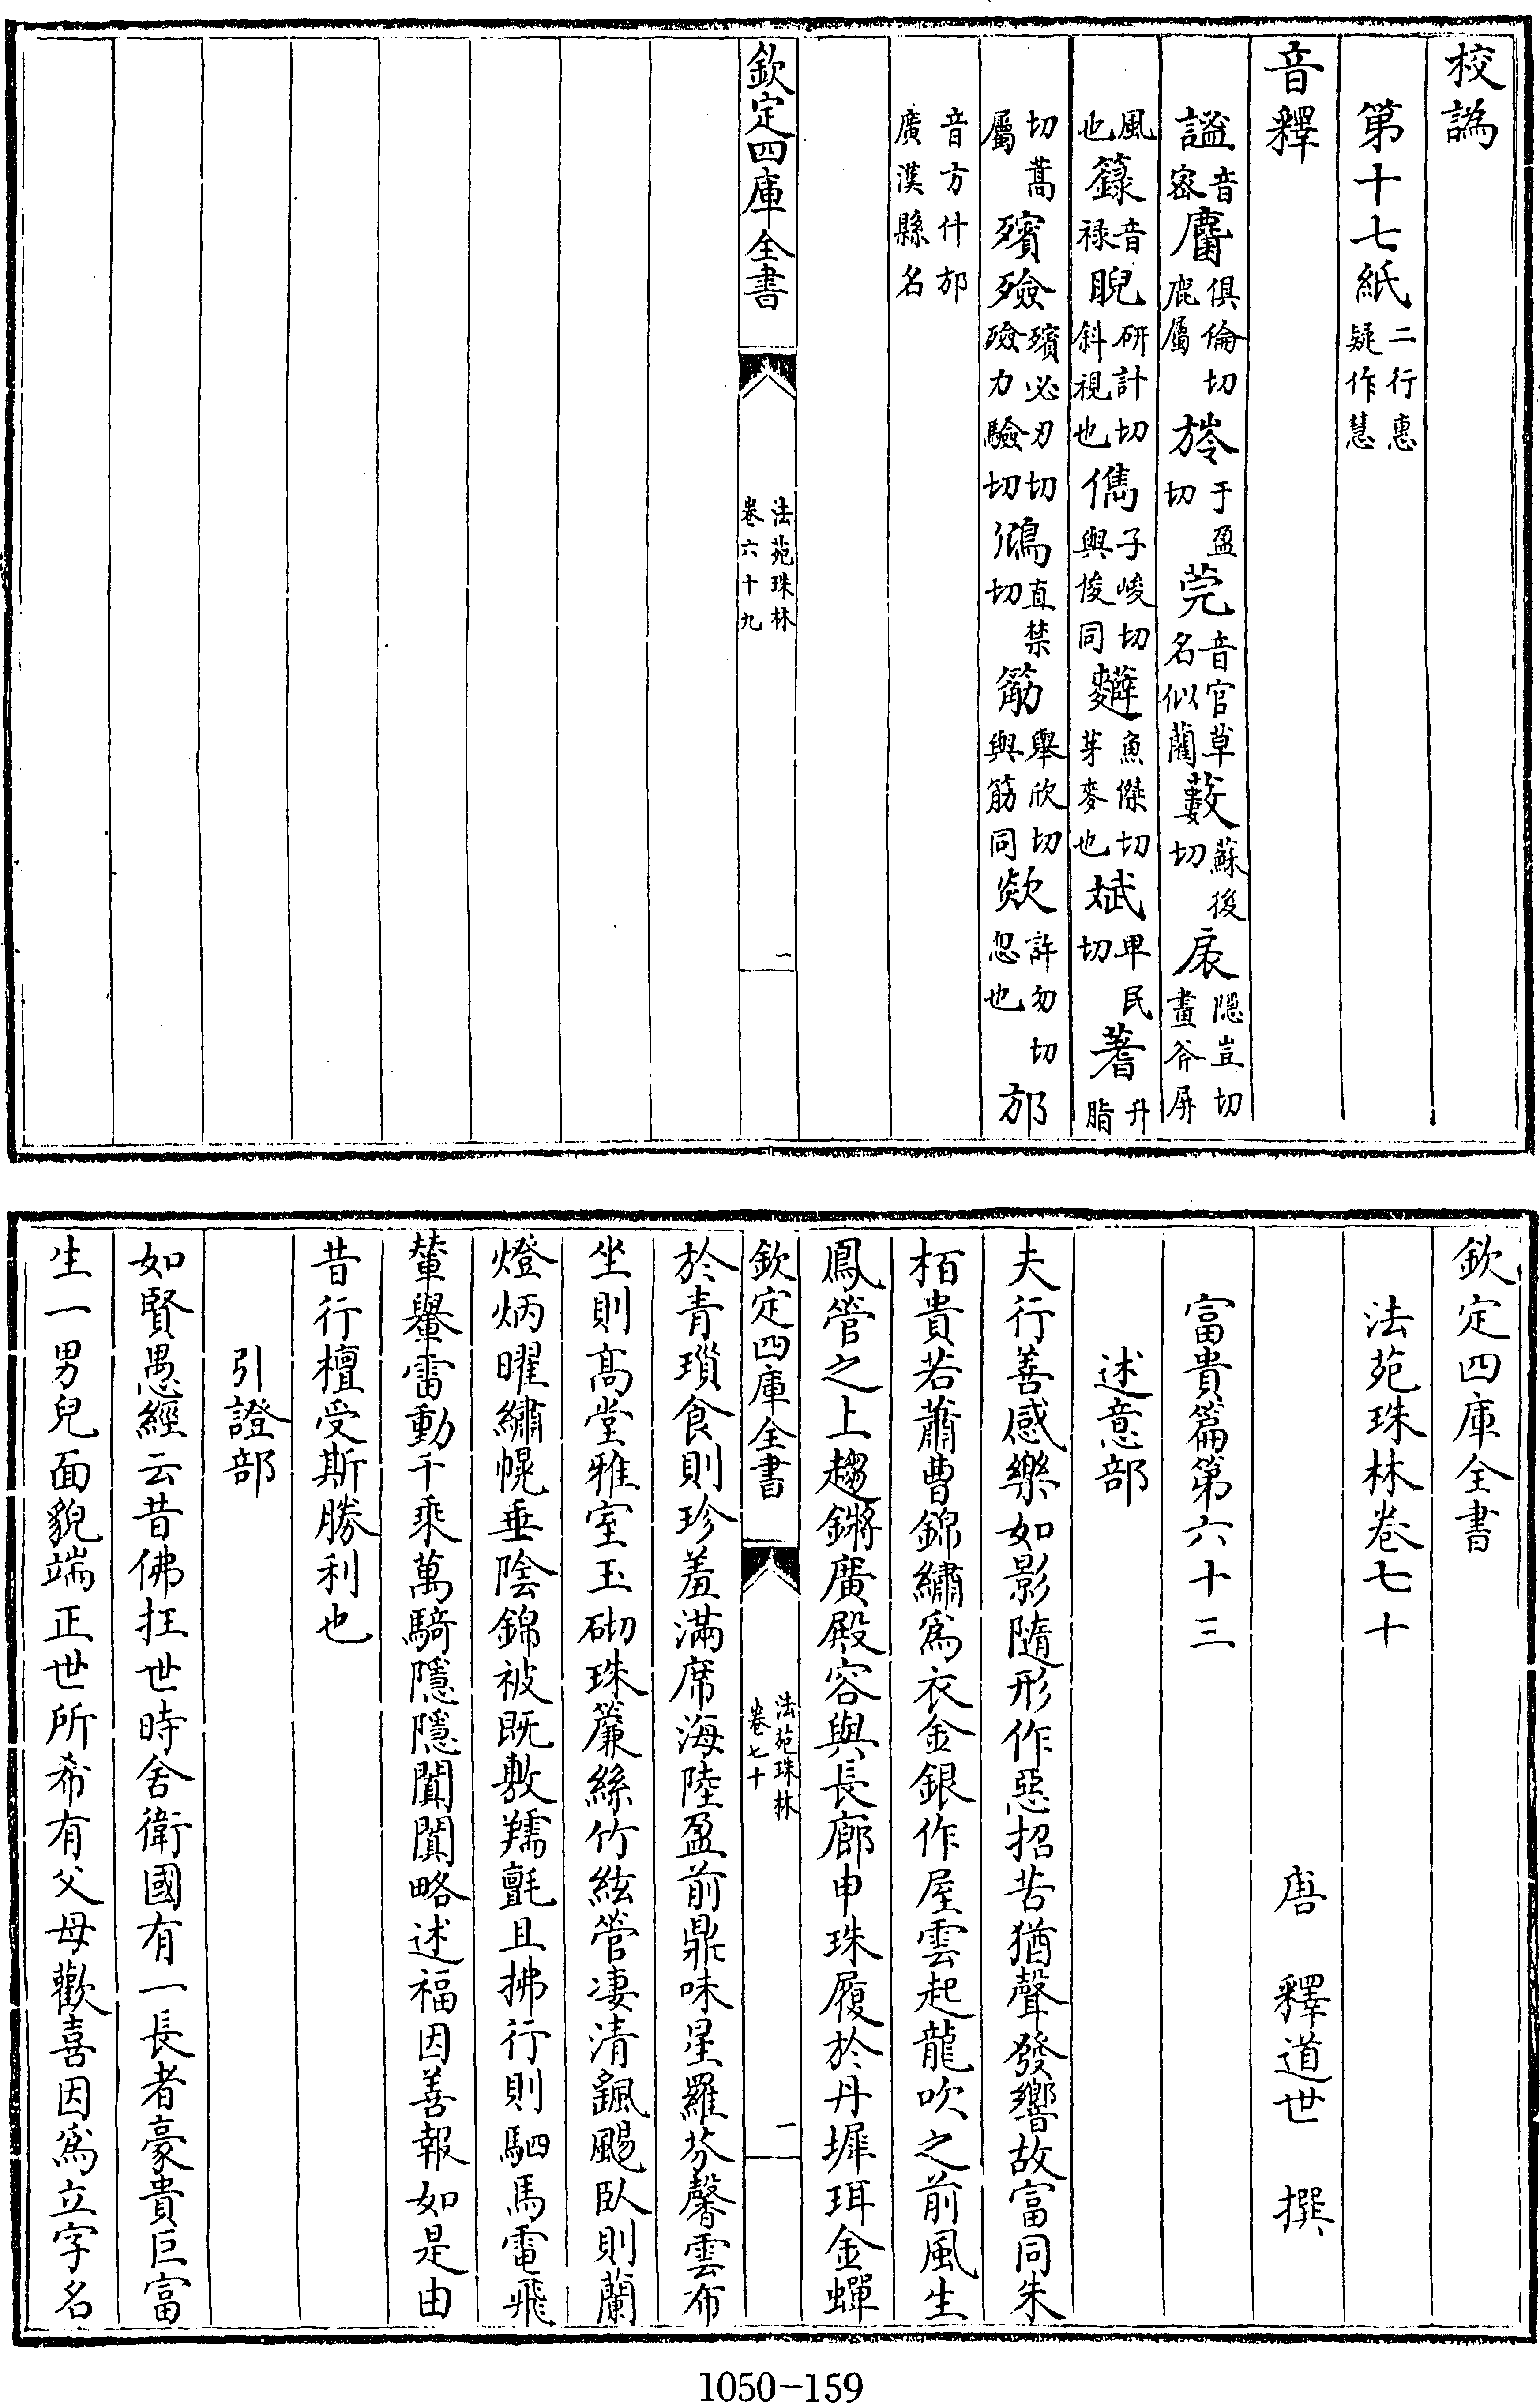 校譌
第十七紙二行惠疑作慧
音釋
謐音宻麏俱倫切鹿屬㫊于盈切莞音官草名似藺藪蘇後切扆隱豈切畫斧屏
風也籙音禄睨研計切斜視也儁子峻切與俊同糱魚傑切芽麥也斌卑民切蓍升脂
切蒿屬殯殮殯必刃切殮力驗切鴆直禁切觔舉欣切與筋同欻許勿切忽也邡
音方什邡廣漢縣名
欽定四庫全書
法苑珠林
卷六十九
二
欽定四庫全書
法苑珠林卷七十
唐 釋道世 撰
富貴篇第六十三
述意部
夫行善感樂如影隨形作惡招苦猶聲發響故富同朱
栢貴若蕭曹錦繡爲衣金銀作屋雲起龍吹之前風生
鳳管之上趨鏘廣殿容與長廊申珠履於丹墀珥金蟬
欽定四庫全書
法苑珠林
卷七十
一
於青瑣食則珍羞滿席海陸盈前鼎味星羅芬馨雲布
坐則髙堂雅室玉砌珠簾絲竹絃管凄清飊颺臥則蘭
燈炳曜繡幌垂陰錦被既敷羺氈且拂行則駟馬電飛
輦轝雷動千乘萬騎隱隱闐闐略述福因善報如是由
昔行檀受斯勝利也
引證部
如賢愚經云昔佛在世時舍衛國有一長者豪貴巨富
生一男兒面貌端正世所希有父母歡喜因爲立字名
1050-159